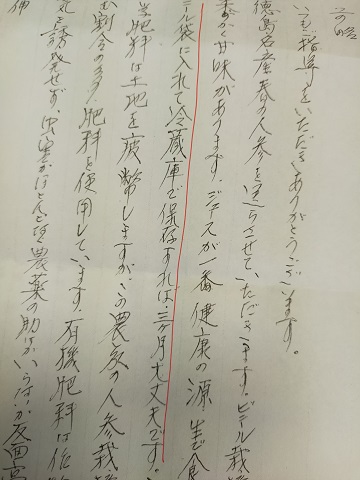 前略
いつもご指導をいただきありがとうございます。
徳島名産春の人参を送らさせていただきます。ビニール栽
香がく甘味があります。ジュースが一番健康の源生で食
ール袋に入れて冷蔵庫で保存すれば三ヶ月大丈夫です。
学肥料は土地を疲弊しますが、この農家の人参栽
む割合のまま肥料を使用しています。有機肥料は
気を誘発せず、虫害がほとんどなく農薬の助けがいらぱ、が反面高